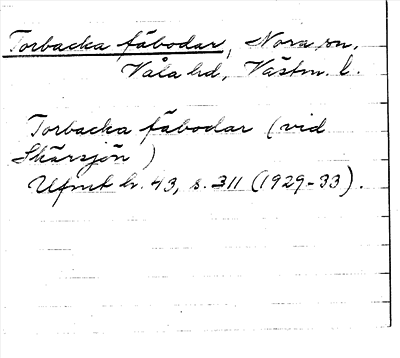 Torbacka fäbodar, Nora sn,
Våla hd, Västm. l.
Torbacka fäbodar (vid
Skärsjön)
Ufmt h. 43, s. 311 (1929-33).